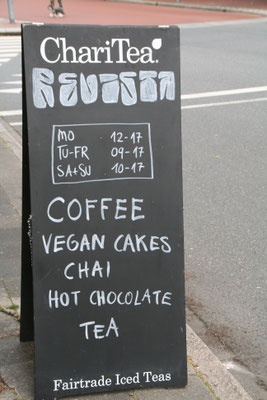 ChariTea
REVISTA
MO 12-17
TU-FR 09-17
SA+SU 10-17
COFFEE
VEGAN CAKES
CHAI
HOT CHOCOLATE
TEA
Fairtrade Iced Teas